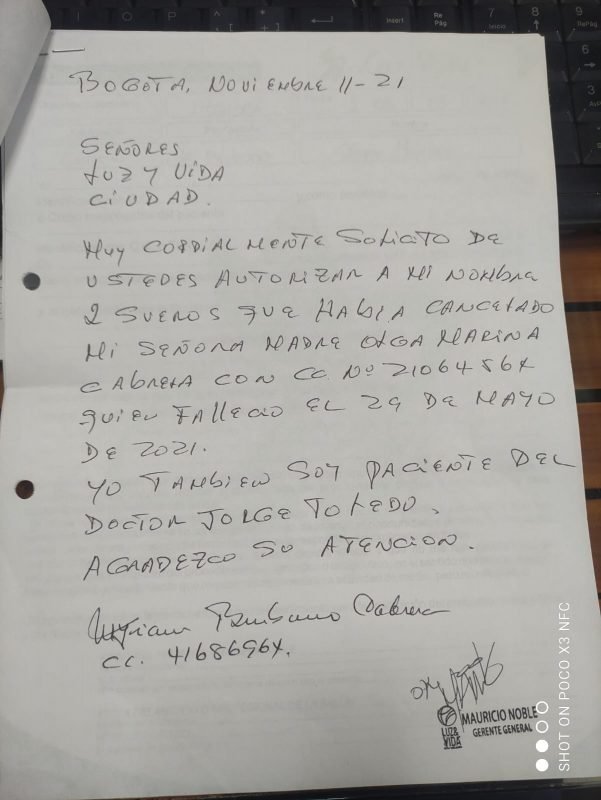 BOGOTA, NOVIEMBRE 11-21
SEÑORES
LUZ Y VIDA
CIUDAD.
MUY CORDIALMENTE SOLICITO DE
USTEDES AUTORIZAR A MI NOMBRE
2 SUEROS QUE HABIA CANCELADO
MI SEÑORA MADRE OLGA MARINA
CABRERA CON CC Nº 21064564
QUIEN FALLECIO EL 29 DE MAYO
DE 2021.
YO TAMBIEN SOY PACIENTE DEL
DOCTOR JORGE TOLEDO.
AGRADEZCO SU ATENCION.
Myriam Cabrera
CC. 41686964.
OK
LUZ&
VIDA
MAURICIO NOBLE
GERENTE GENERAL
SHOT ON POCO X3 NFC
Insert
Re
Pág
7
Inicio
8
9
RePág
6
3